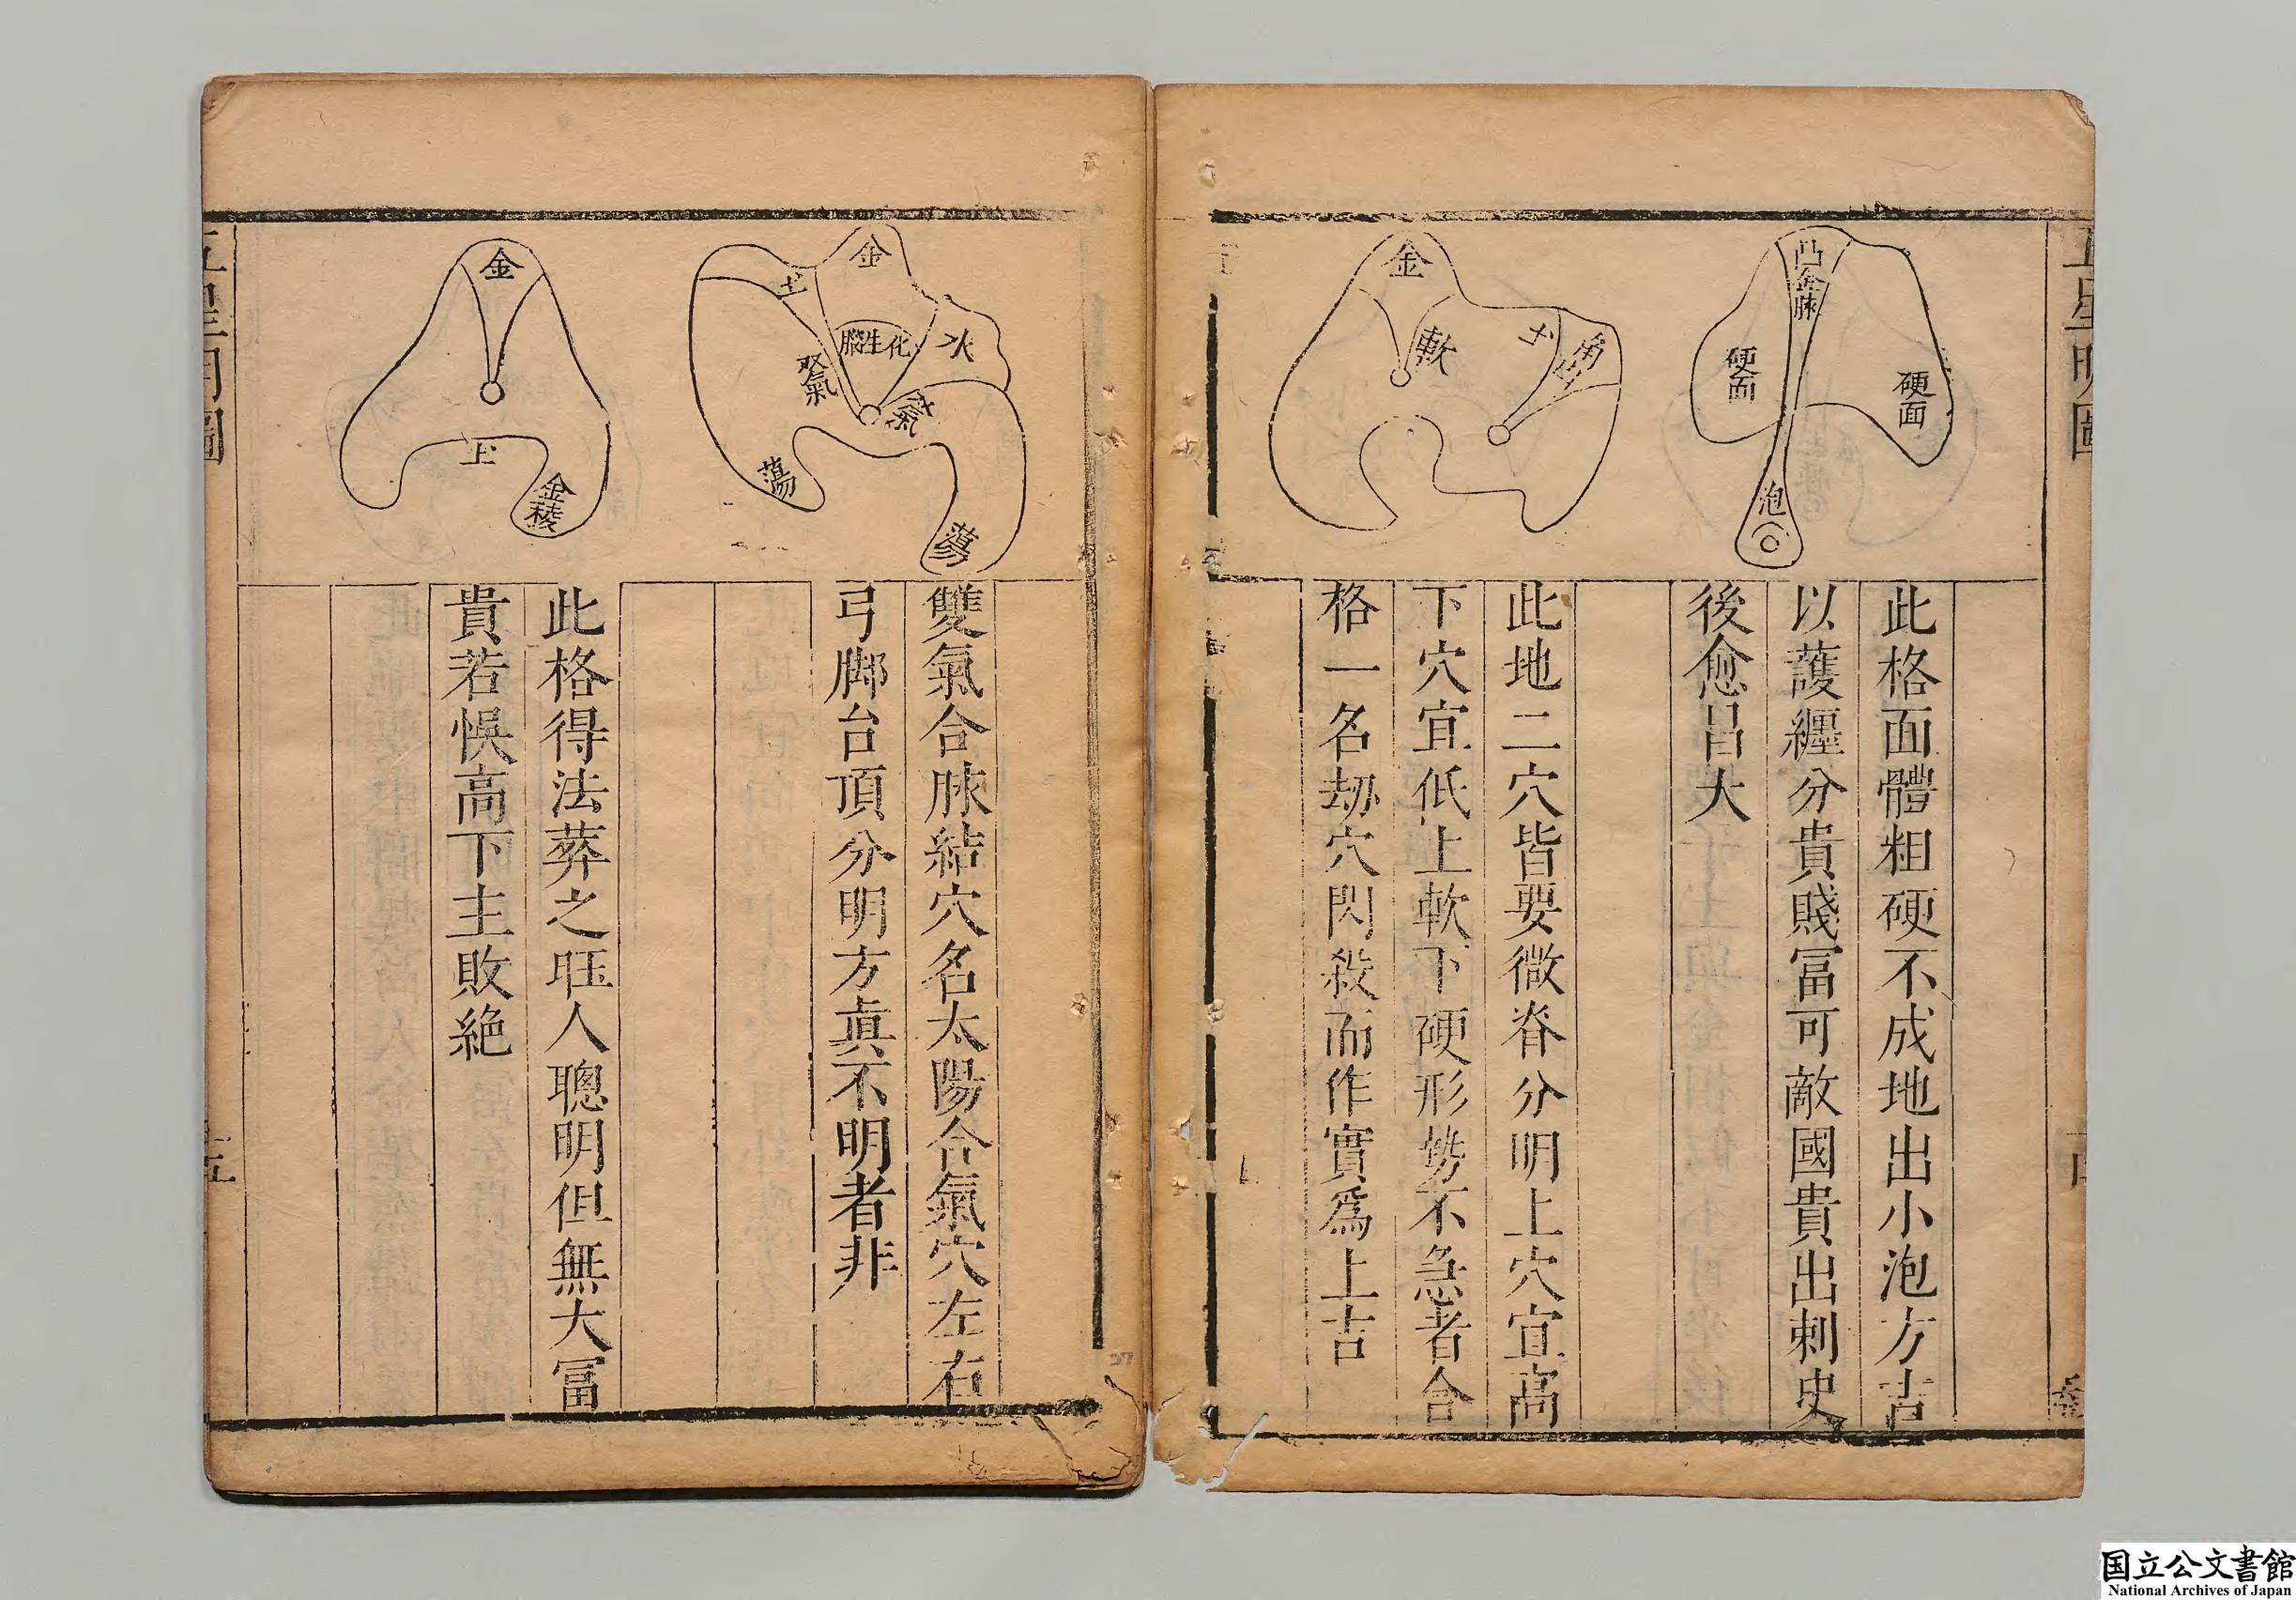 五星明圖
凸金脉
硬面
硬面
泡
此格面體粗硬不成地出小泡方吉
以護纏分貴賤冨可敵國貴出刺史
後愈昌大
金
軟
土
角
此地二穴皆要微脊分明上穴宜高
下穴宜低上軟下硬形勢不急者合
格一名刼穴閃殺而作實爲上吉
金
土
水
化生腦
氣
氣
蕩
蕩
雙氣合脉結穴名太陽合氣穴左右
弓脚台頂分明方眞不明者非
金
土
金稜
此格得法葬之旺人聰明但無大冨
貴若悞高下主敗絶
五星明圖
十五
国立公文書館
National Archives of Japan